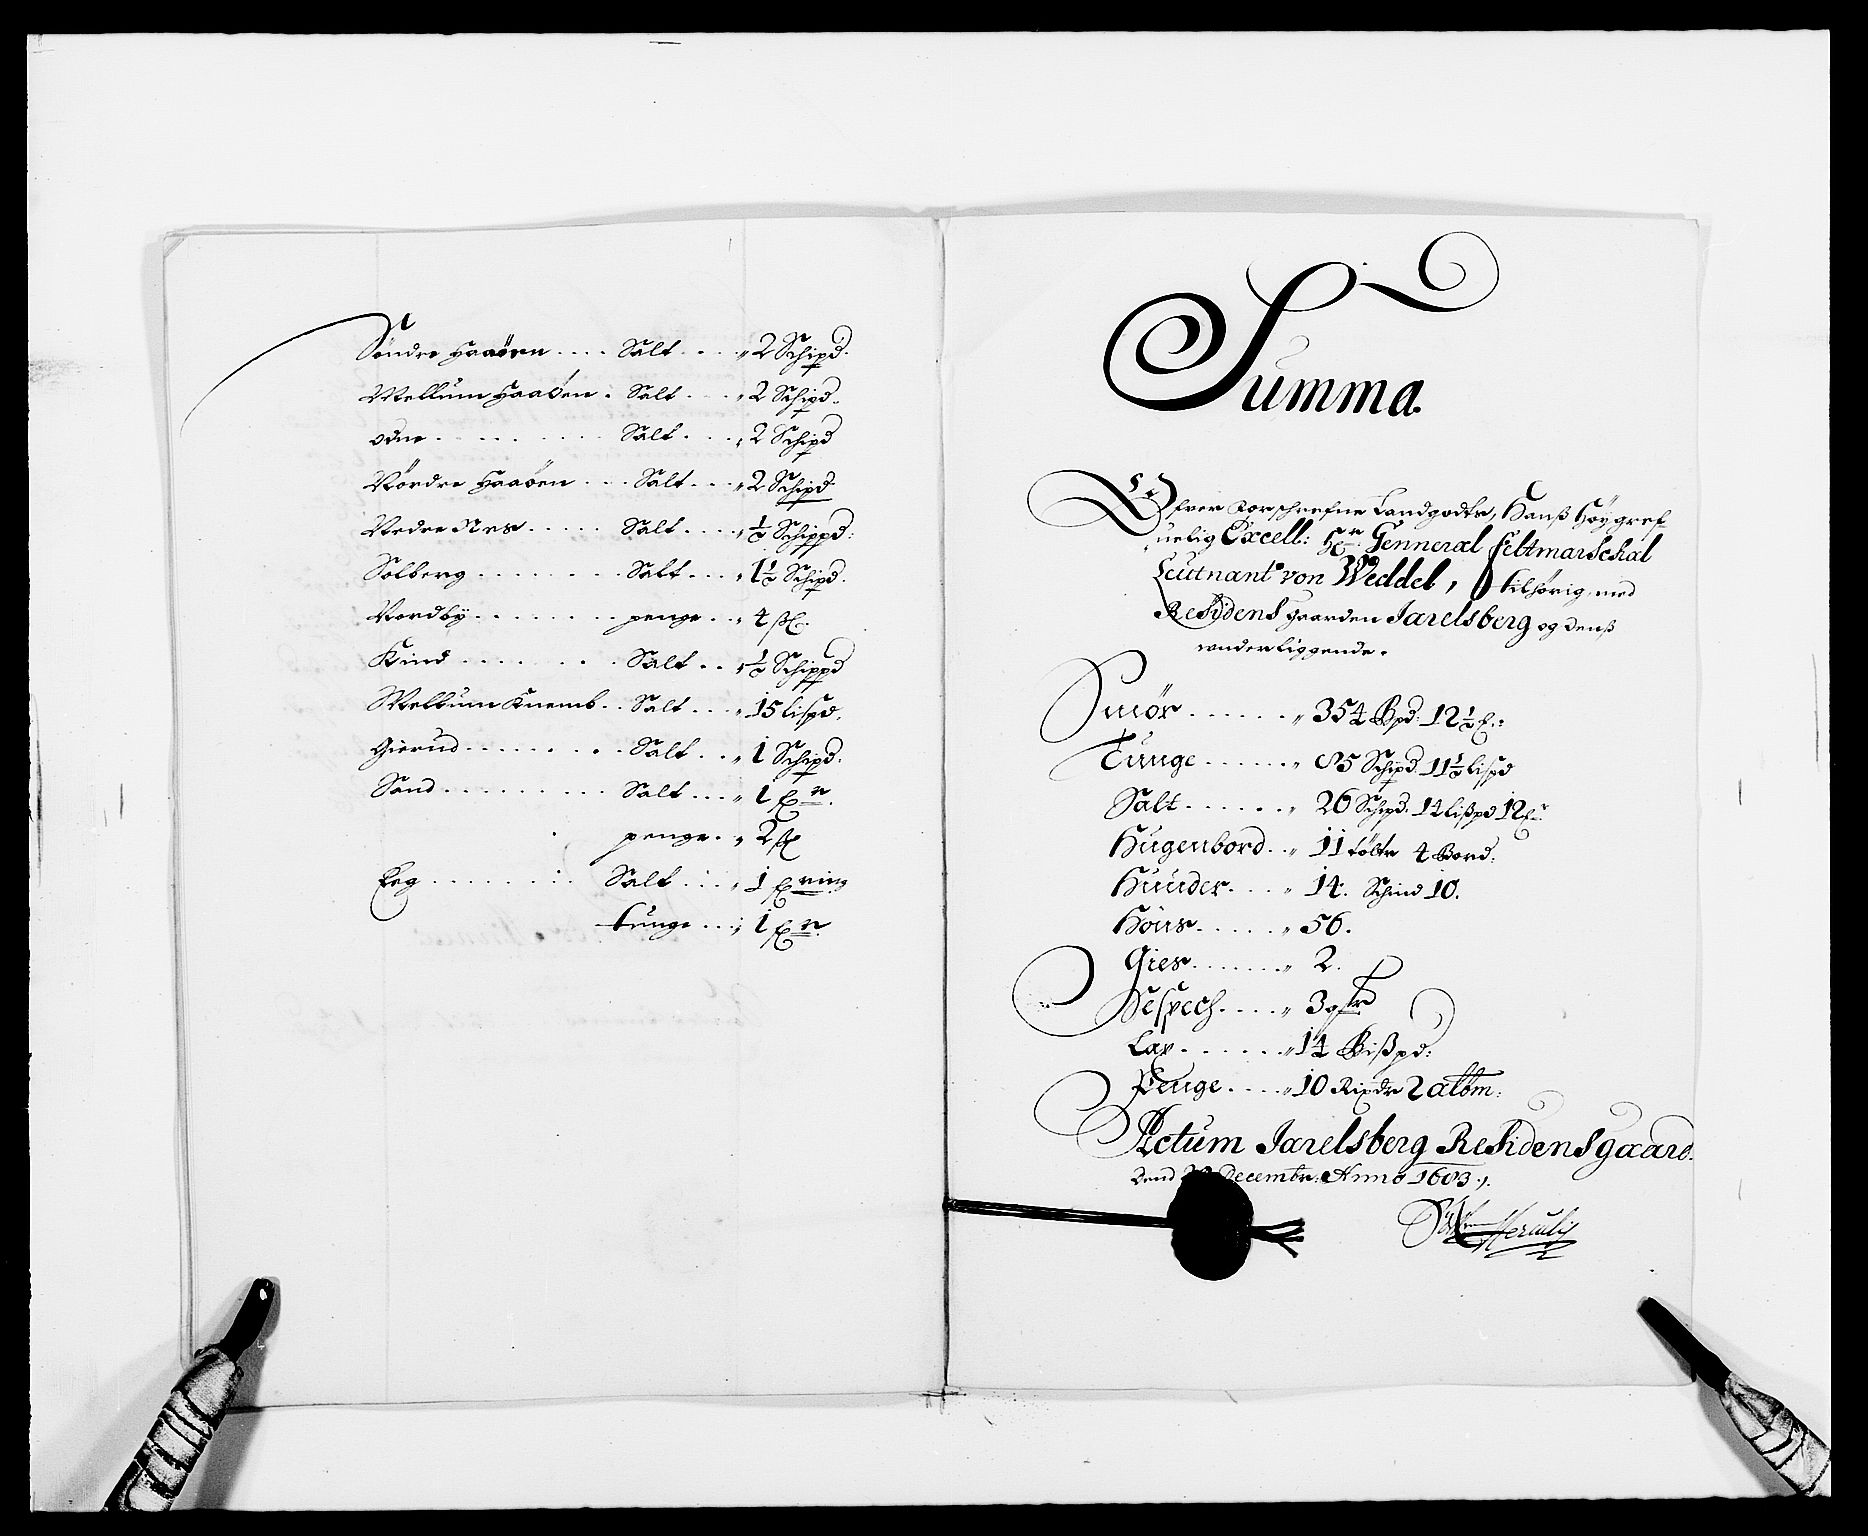 Söndre Haaöen .... Salt .... 2 Schipd.
Mellum Haaöen . Salt .... 2 Schipd.
odne ........ Salt .... 2 Schipd
Nördre Haaöen ... Salt ... 2 Schipd.
Nedre Nes ..... Salt .... ½ Schippd:
Solberg ....... Salt .... 1½ Schipd.
Nordby ....... penge .. 4 ß.
Kind ....... Salt .. ½ Schippd
Mellum Knemb .. Salt ... 15 lispd.
Gierud ....... Salt ... 1 Schipd.
Sand ......... Salt ...
penge .. 2 ß
Eeg ....... Salt ... 1
tunge ... 1
Summa.
Ofver Forschrefne Landgodtz, Hanß Höygref-
uelig Excell: Hr: Genneral Feltmarschal
Leutnant von Weddel, tilhörig, med
Residens Gaarden Jarelsberg og denß
underliggende.
Smör ...... 354 Bpd: 12½
Tunge ...... 85 Schipd. 11½ lispd
Salt ...... 26 Schpd. 14 lißpd 12
Hugenbord .. 11 tölte 4 Bord:
Huuder .... 14. Schind 10.
Höns ..... 56.
Gies ....... 2.
Selspech .... 3
Lax ...... 14 Bißpd:
Penge .... 10 Rixdr 2 albm:
Actum Jarelsberg Residensgaard.
Dend Decembr: Anno 1683.
Herculis